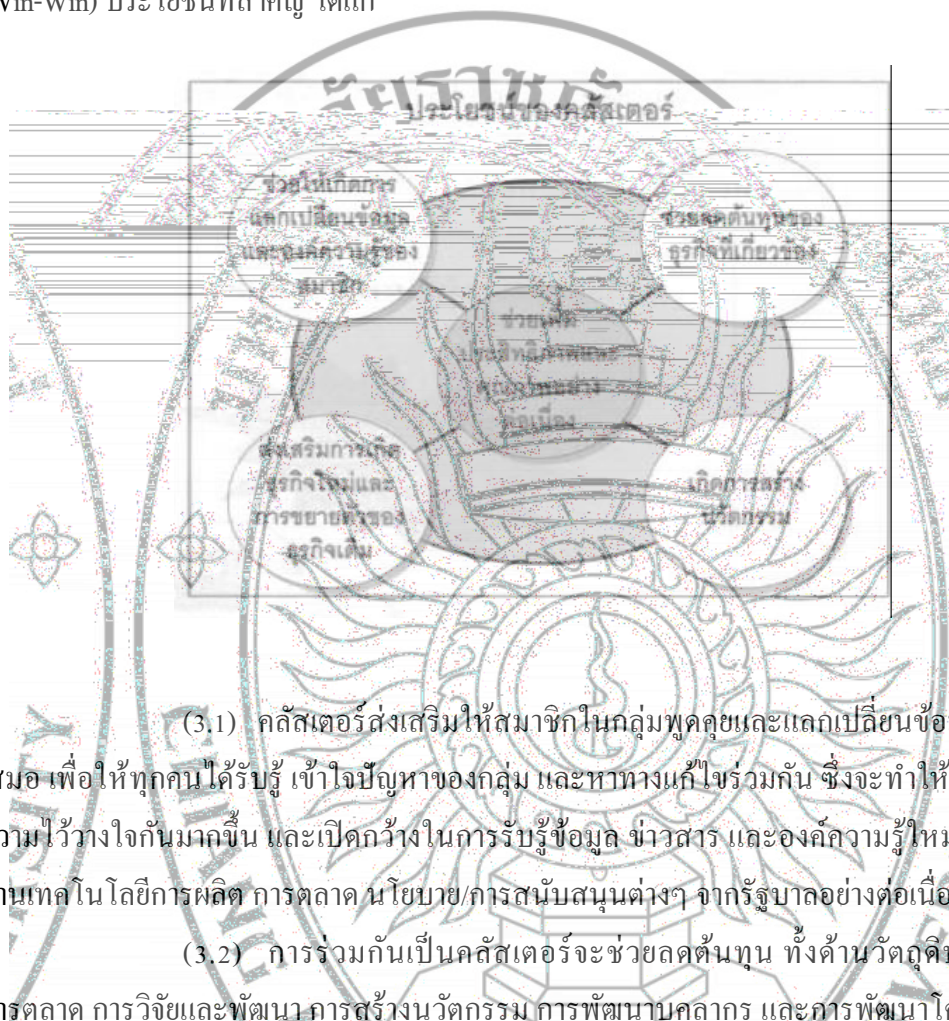 Win-Win) ประโยชน์ที่สำคัญ ได้แก่
ประโยชน์ของคลัสเตอร์
ช่วยให้เกิดการ
แลกเปลี่ยนข้อมูล
และองค์ความรู้ของ
สมาชิก
ช่วยลดต้นทุนของ
ธุรกิจที่เกี่ยวข้อง
ช่วยเพิ่ม
ประสิทธิภาพและ
คุณภาพอย่าง
ต่อเนื่อง
ส่งเสริมการเกิด
ธุรกิจใหม่และ
การขยายตัวของ
ธุรกิจเดิม
เกิดการสร้าง
นวัตกรรม
(3.1) คลัสเตอร์ส่งเสริมให้สมาชิกในกลุ่มพูดคุยและแลกเปลี่ยนข้อ
สมอ เพื่อให้ทุกคนได้รับรู้ เข้าใจปัญหาของกลุ่ม และหาทางแก้ไขร่วมกัน ซึ่งจะทำให้
วามไว้วางใจกันมากขึ้น และเปิดกว้างในการรับรู้ข้อมูล ข่าวสาร และองค์ความรู้ใหม
านเทคโนโลยีการผลิต การตลาด นโยบาย/การสนับสนุนต่างๆ จากรัฐบาลอย่างต่อเนื่อ
(3.2) การร่วมกันเป็นคลัสเตอร์จะช่วยลดต้นทุน ทั้งด้านวัตถุดิบ
ารตลาด การวิจัยและพัฒนา การสร้างนวัตกรรม การพัฒนาบุคลากร และการพัฒนาโค